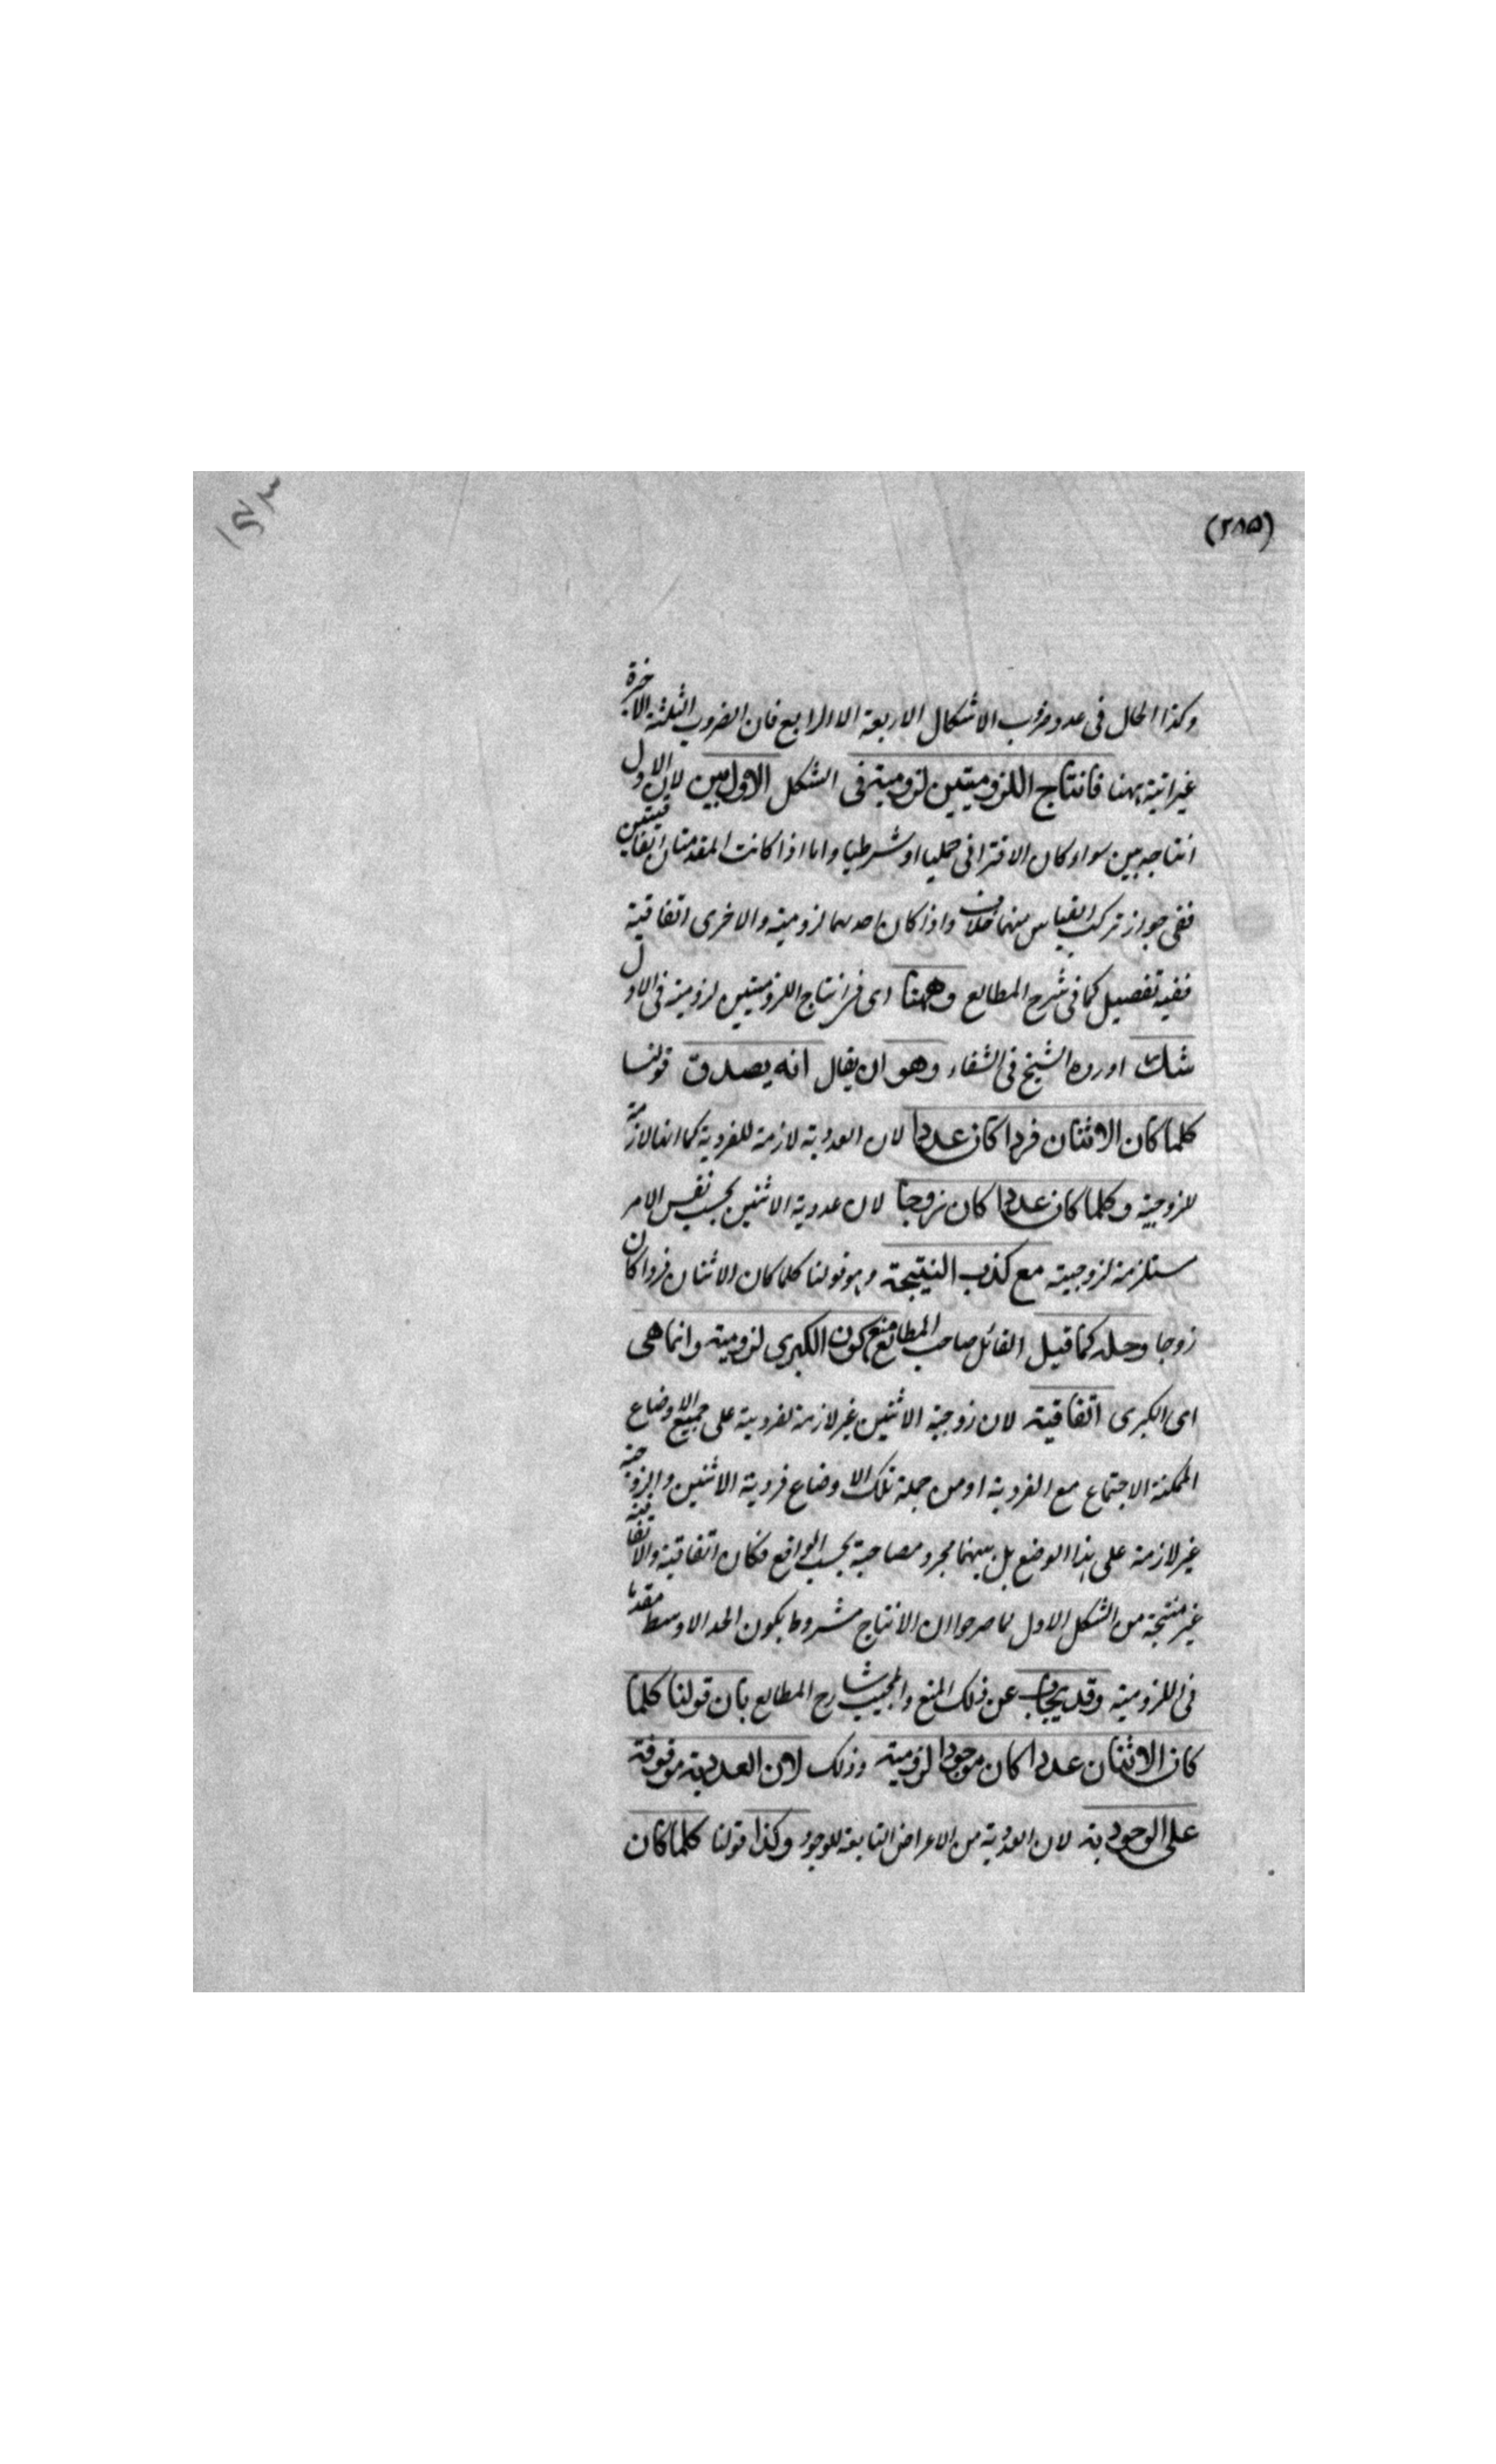 (٢٨٥)
وكذا الحال فى عدد ضروب الاشكال الاربعة الا الرابع فان الضروب الثلثة الاخيرة
غير اتية ههنا فانتاج اللزوميتين لزومية فى الشكل الاول بين لان الاول
انتاجه بين سواء كان الاقترانى حمليا او شرطيا واما اذا كانت المقدمتان اتفاقيتين
ففى جواز تركب القياس منهما خلاف واذا كان احدهما لزومية والاخرى اتفاقية
ففيه تفصيل كما فى شرح المطالع وههنا اى فى انتاج اللزوميتين لزومية فى الاول
شك اورده الشيخ فى الشفاء وهو ان يقال انه يصدق قولنا
كلما كان الاثنان فردا كان عددا لان العددية لازمة للفردية كما انها لازمة
للزوجية وكلما كان عددا كان زوجا لان عددية الاثنين بحسب نفس الامر
مستلزمة لزوجيته مع كذب النتيجة وهو قولنا كلما كان الاثنان فردا كان
زوجا وحله كما قيل القائل صاحب المطالع منع كون الكبرى لزومية وانما هى
اى الكبرى اتفاقية لان زوجية الاثنين غير لازمة لفردية على جميع الاوضاع
الممكنة الاجتماع مع الفردية اومن جملة تلك الاوضاع فردية الاثنين والزوجية
غير لازمة على هذا الوضع بل بينهما مجرد مصاحبة بحسب الواقع فكان اتفاقية والاتفاقية
غير منتجة من الشكل الاول لما صرحوا ان الانتاج مشروط بكون الحد الاوسط مقدما
فى اللزومية وقد يجاب عن ذلك المنع والمجيب شارح المطالع بان قولنا كلما
كان الاثنان عددا كان موجودا لزومية وذلك لان العددية موقوفة
على الوجودية لان العددية من الاعراض التابعة للوجود وكذا قولنا كلما كان